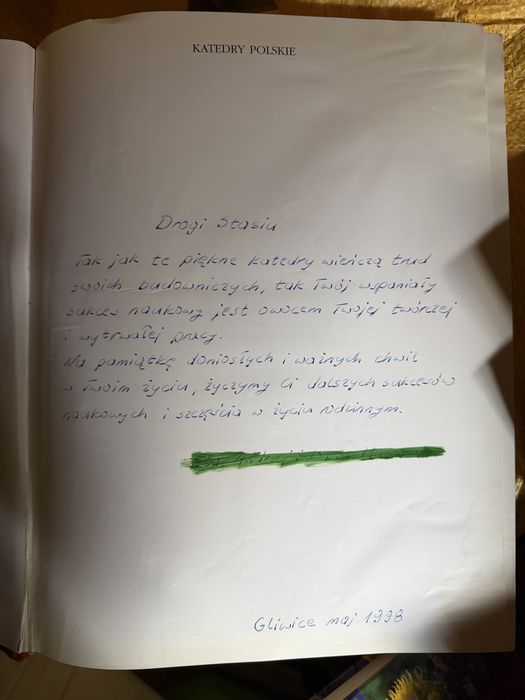 KATEDRY POLSKIE
Drogi Stasiu
Tak jak te piękne katedry wieńczą trud
swoich budowniczych, tak Twój wspaniały
sukces naukowy jest owocem Twojej twórczej
i wytrwałej pracy.
Na pamiątkę doniosłych i ważnych chwil
w Twoim życiu, życzymy Ci dalszych sukcesów
naukowych i szczęścia w życiu rodzinnym.
Gliwice maj 1998